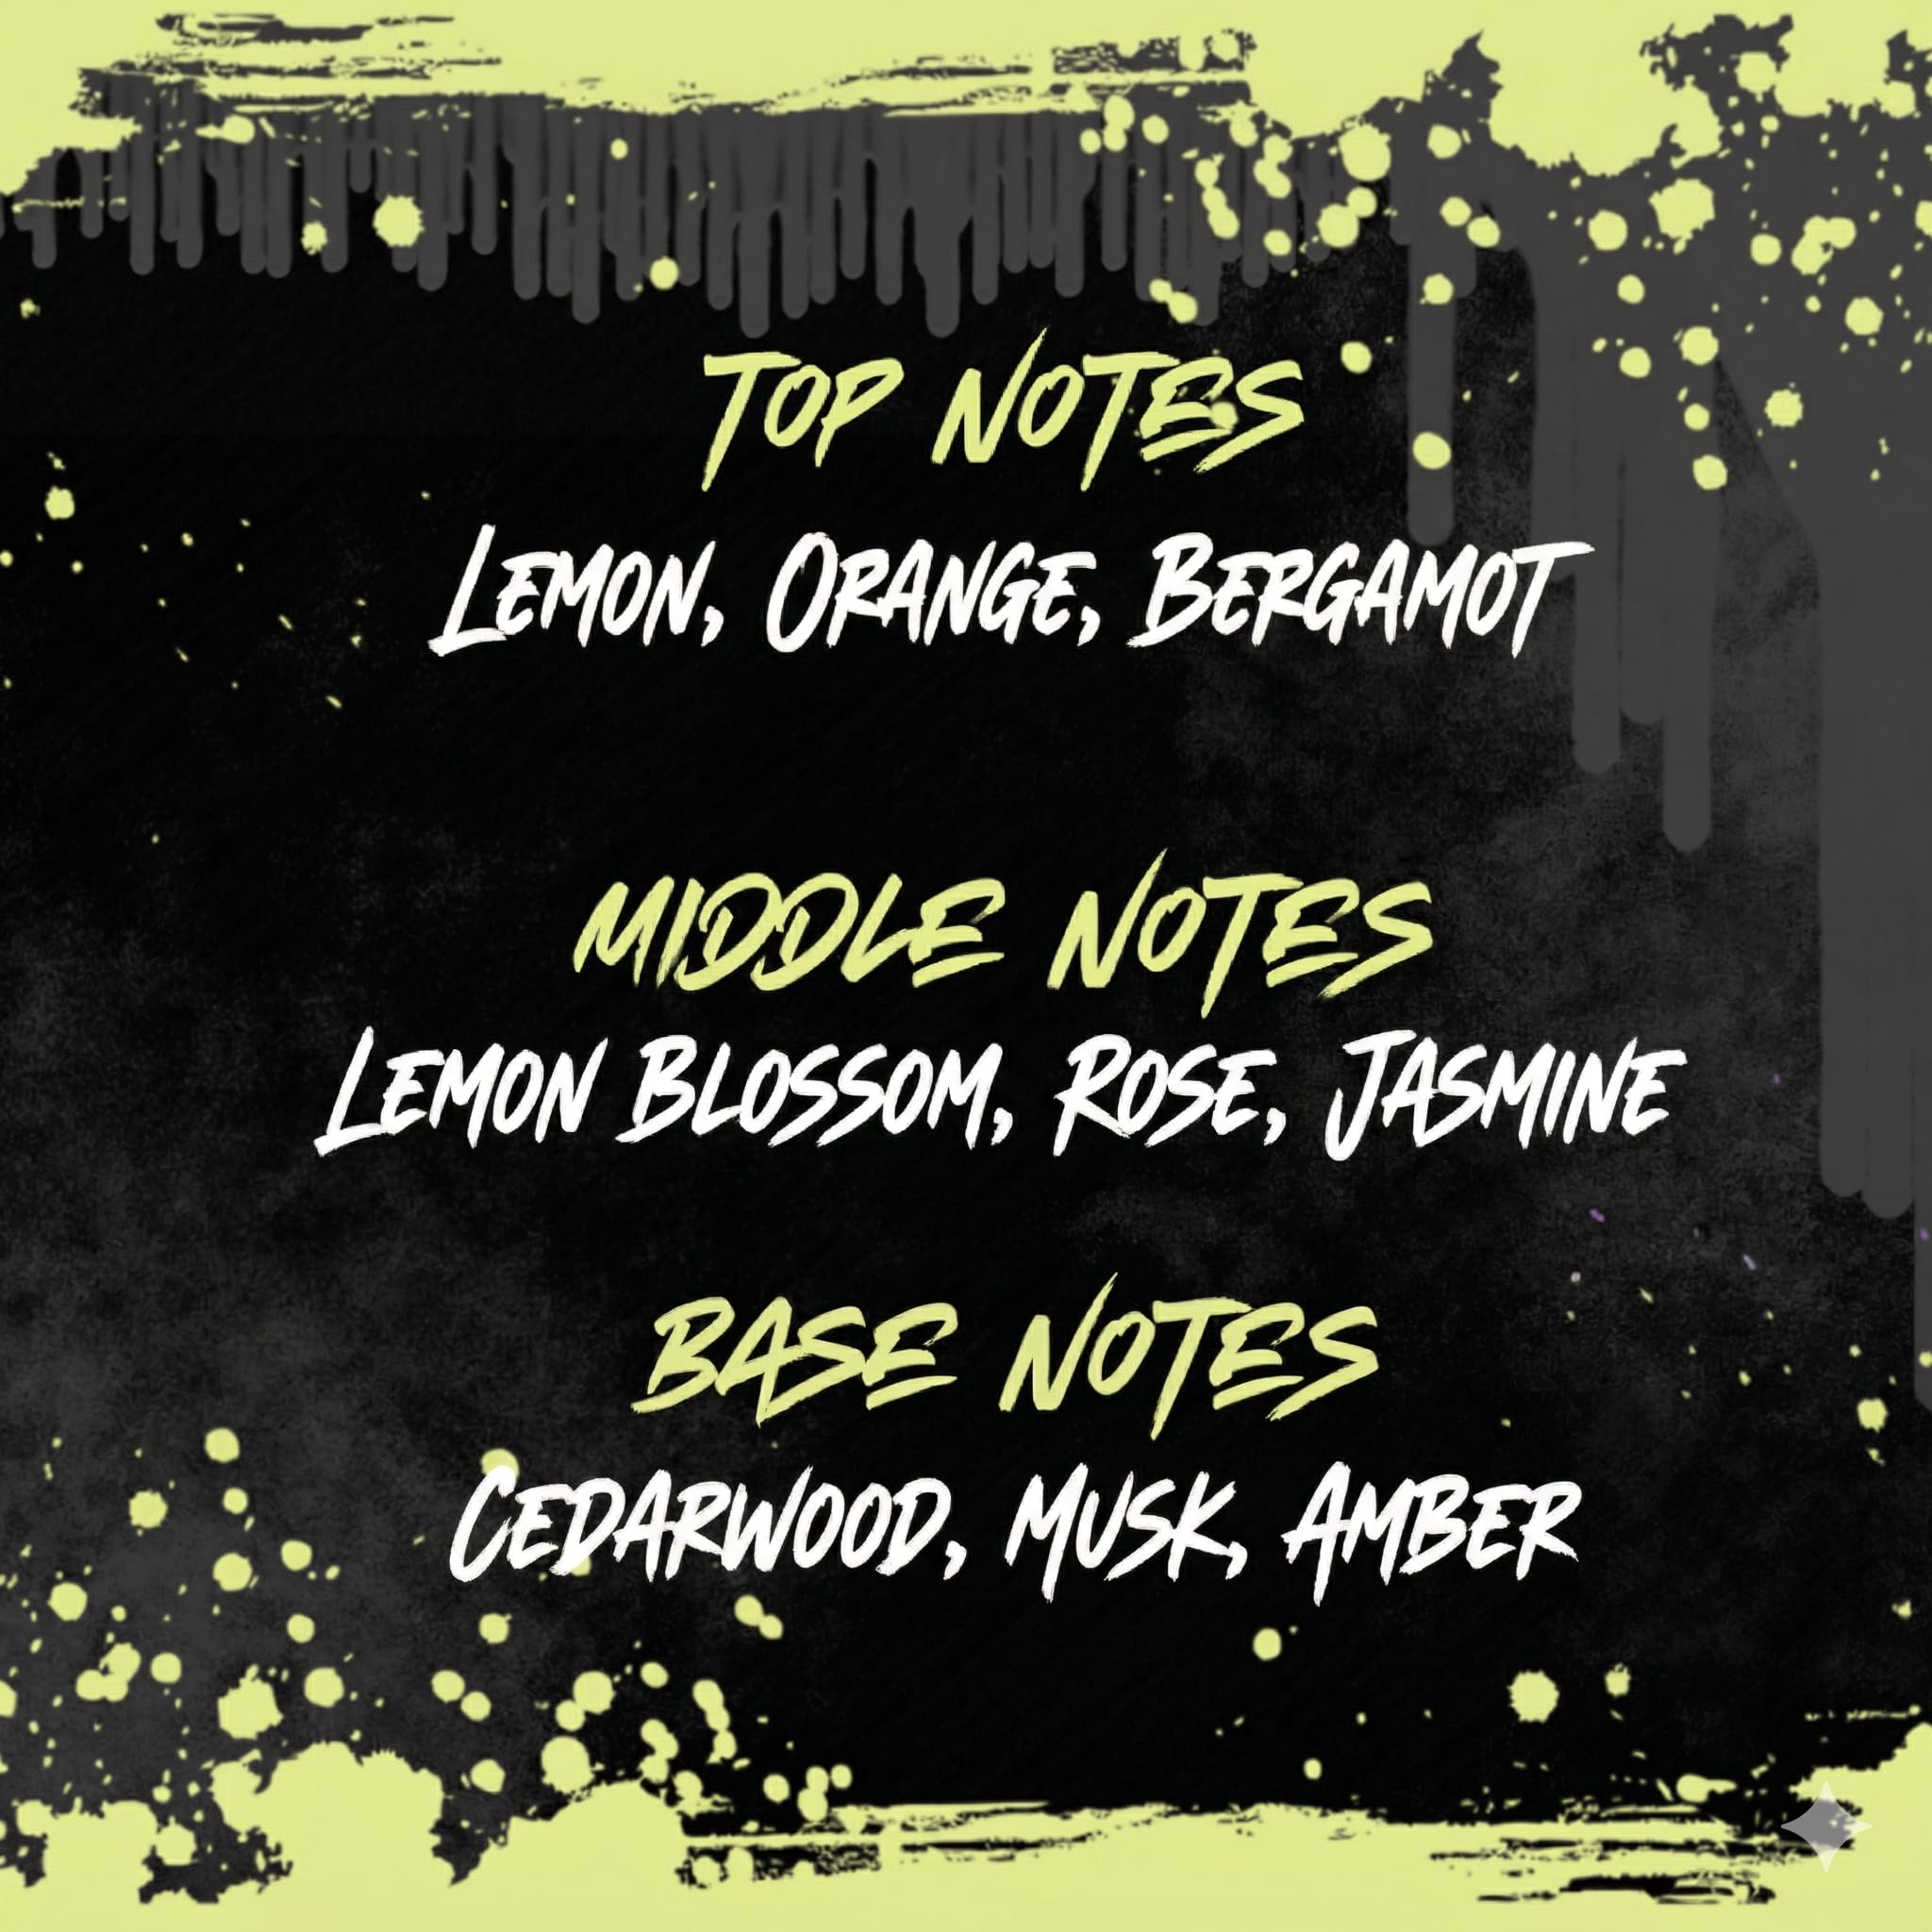 TOP NOTES
LEMON, ORANGE, BERGAMOT
MIDDLE NOTES
LEMON BLOSSOM, ROSE, JASMINE
BASE NOTES
CEDARWOOD, MUSK, AMBER